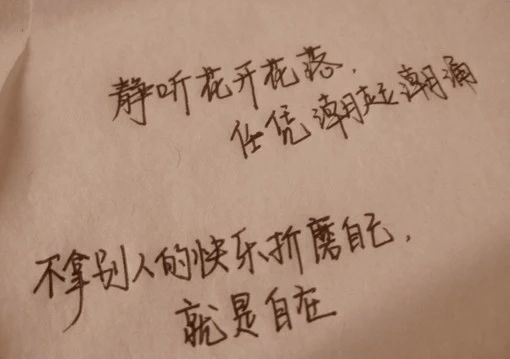 静听花开花落，
任凭潮起潮涌
不拿别人的快乐折磨自己，
就是自在